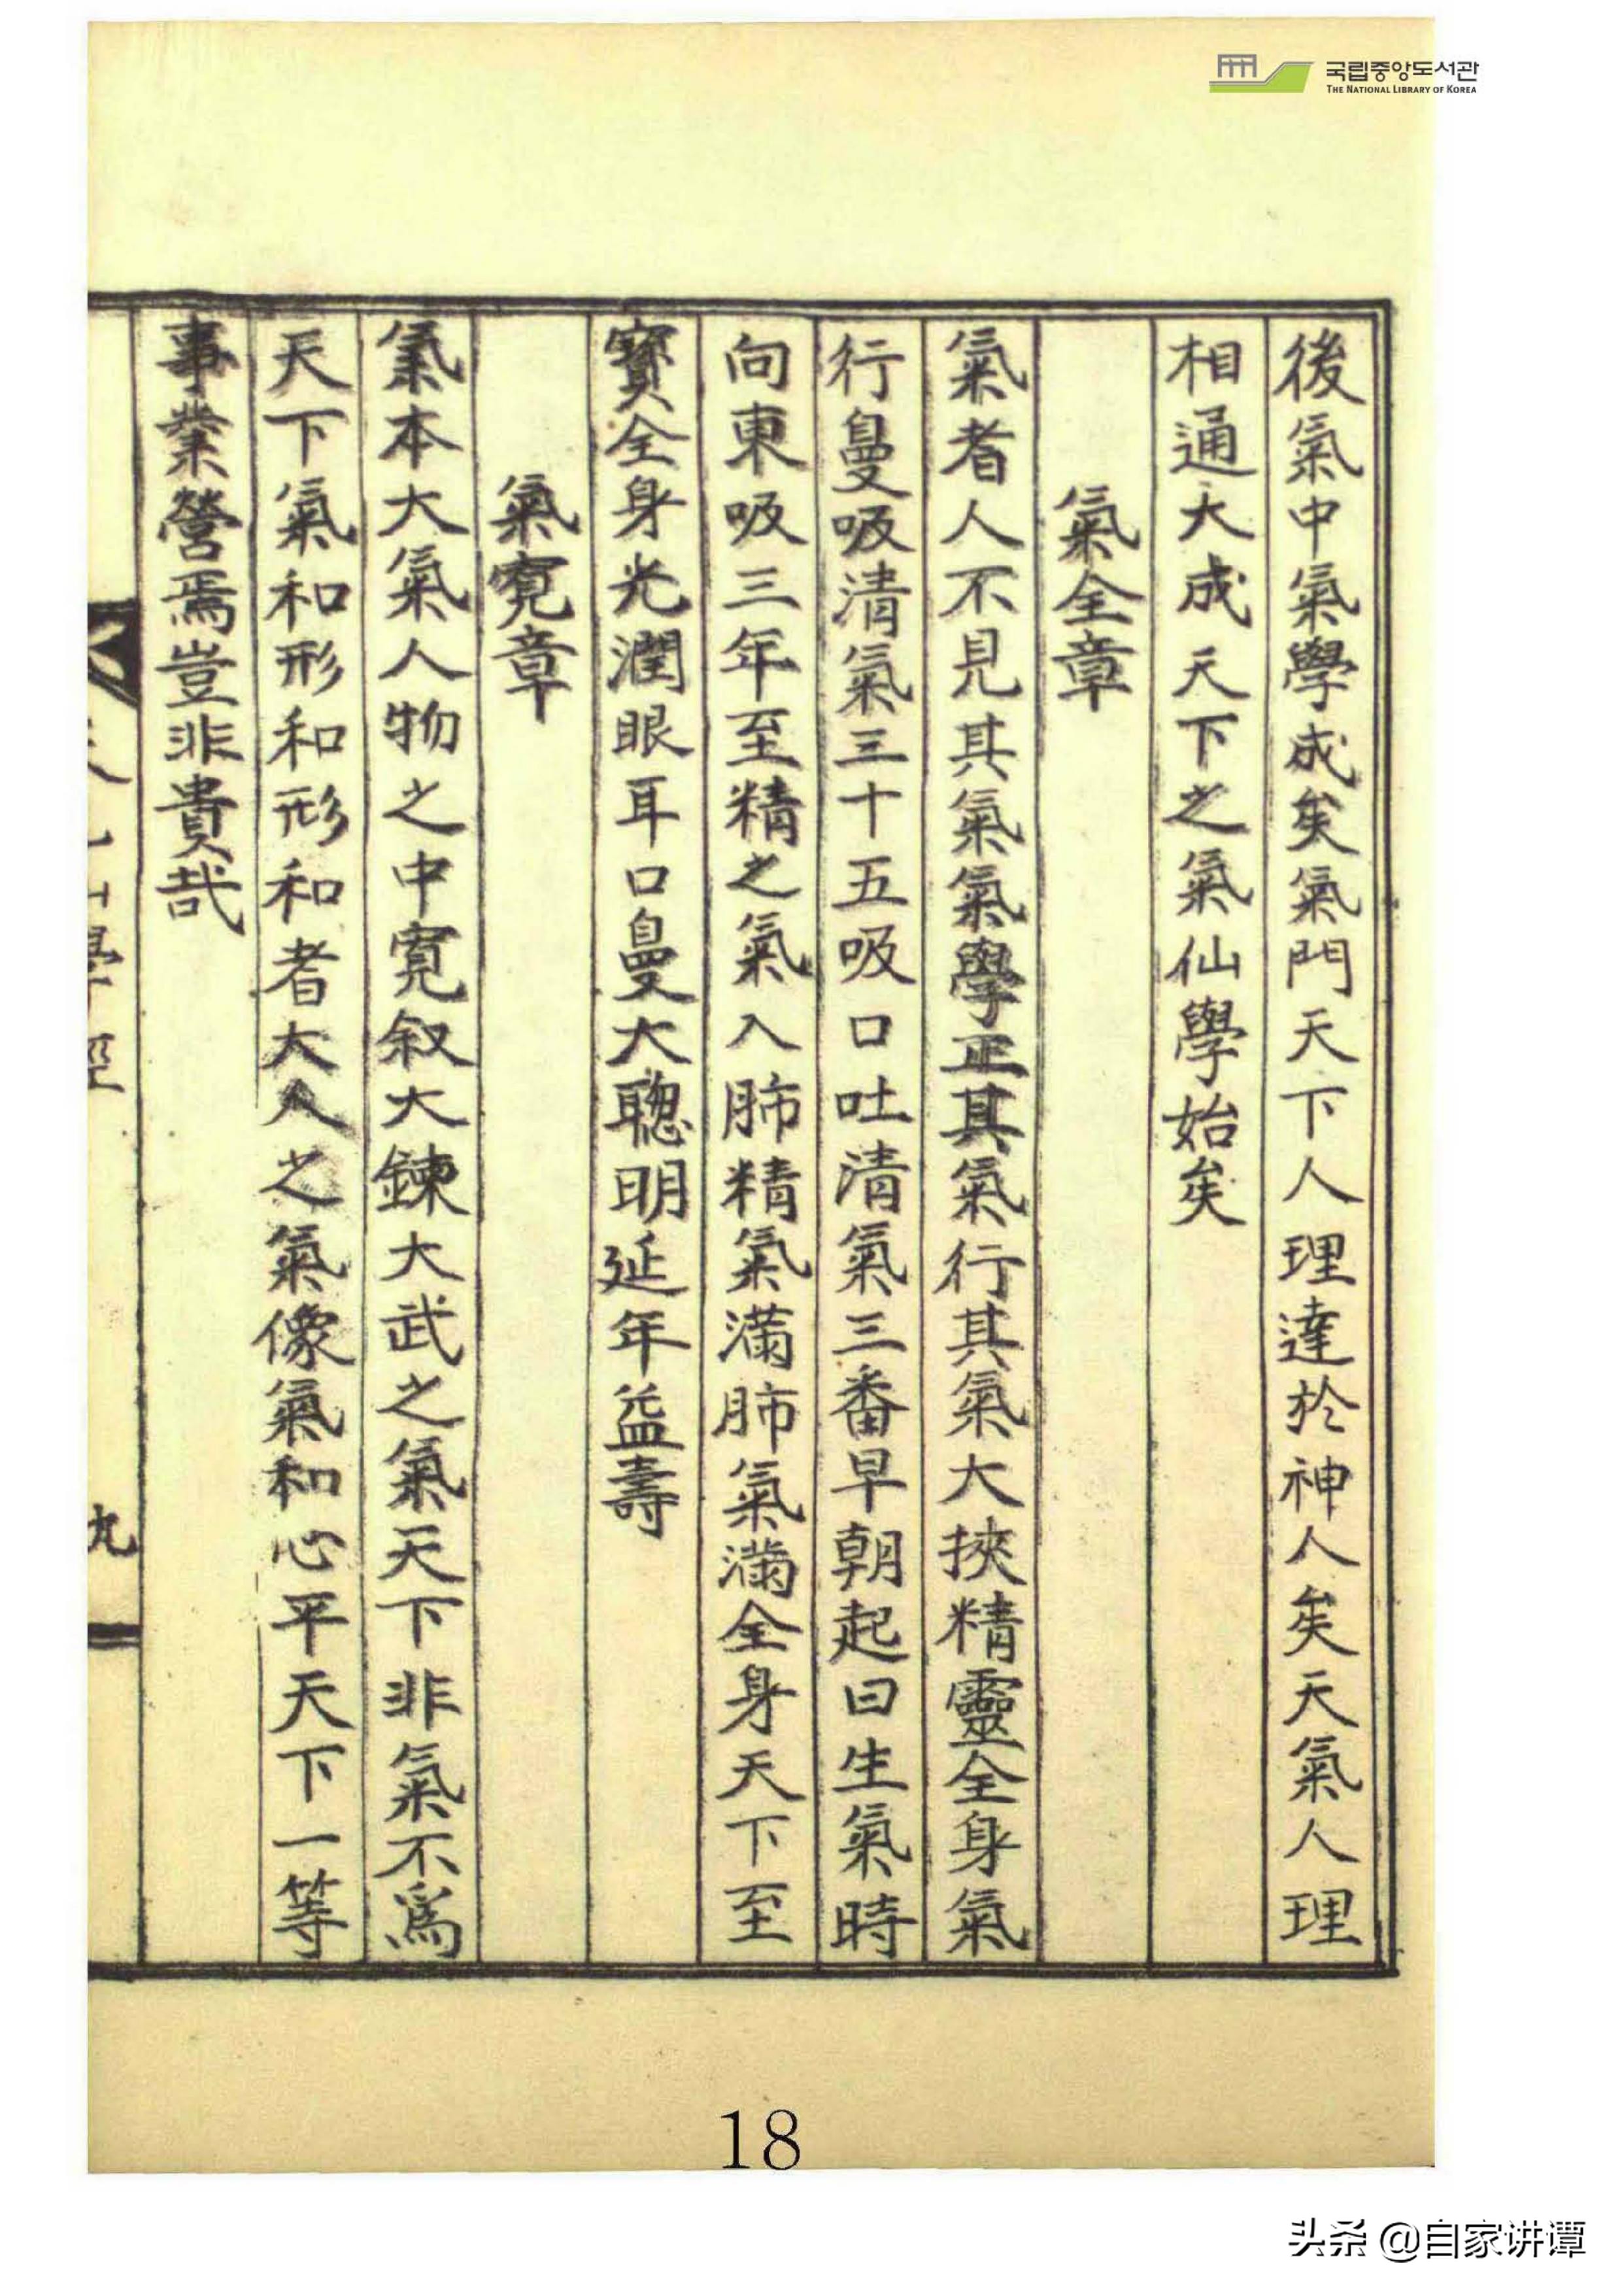 국립중앙도서관
THE NATIONAL LIBRARY OF KOREA
後氣中氣學成矣氣門天下人理達於神人矣天氣人理
相通大成天下之氣仙學始矣
氣全章
氣者人不見其氣氣學正其氣行其氣大挾精靈全身氣
行曼吸清氣三十五吸口吐清氣三番早朝起日生氣時
向東吸三年至精之氣入肺精氣滿肺氣滿全身天下至
寶全身光潤眼耳口曼大聰明延年益壽
氣寬章
氣本大氣人物之中寬叙大鍊大武之氣天下非氣不爲
天下氣和形和形和者大人之氣像氣和心平天下一等
事業營焉豈非貴哉
九
18
头条 @自家讲谭